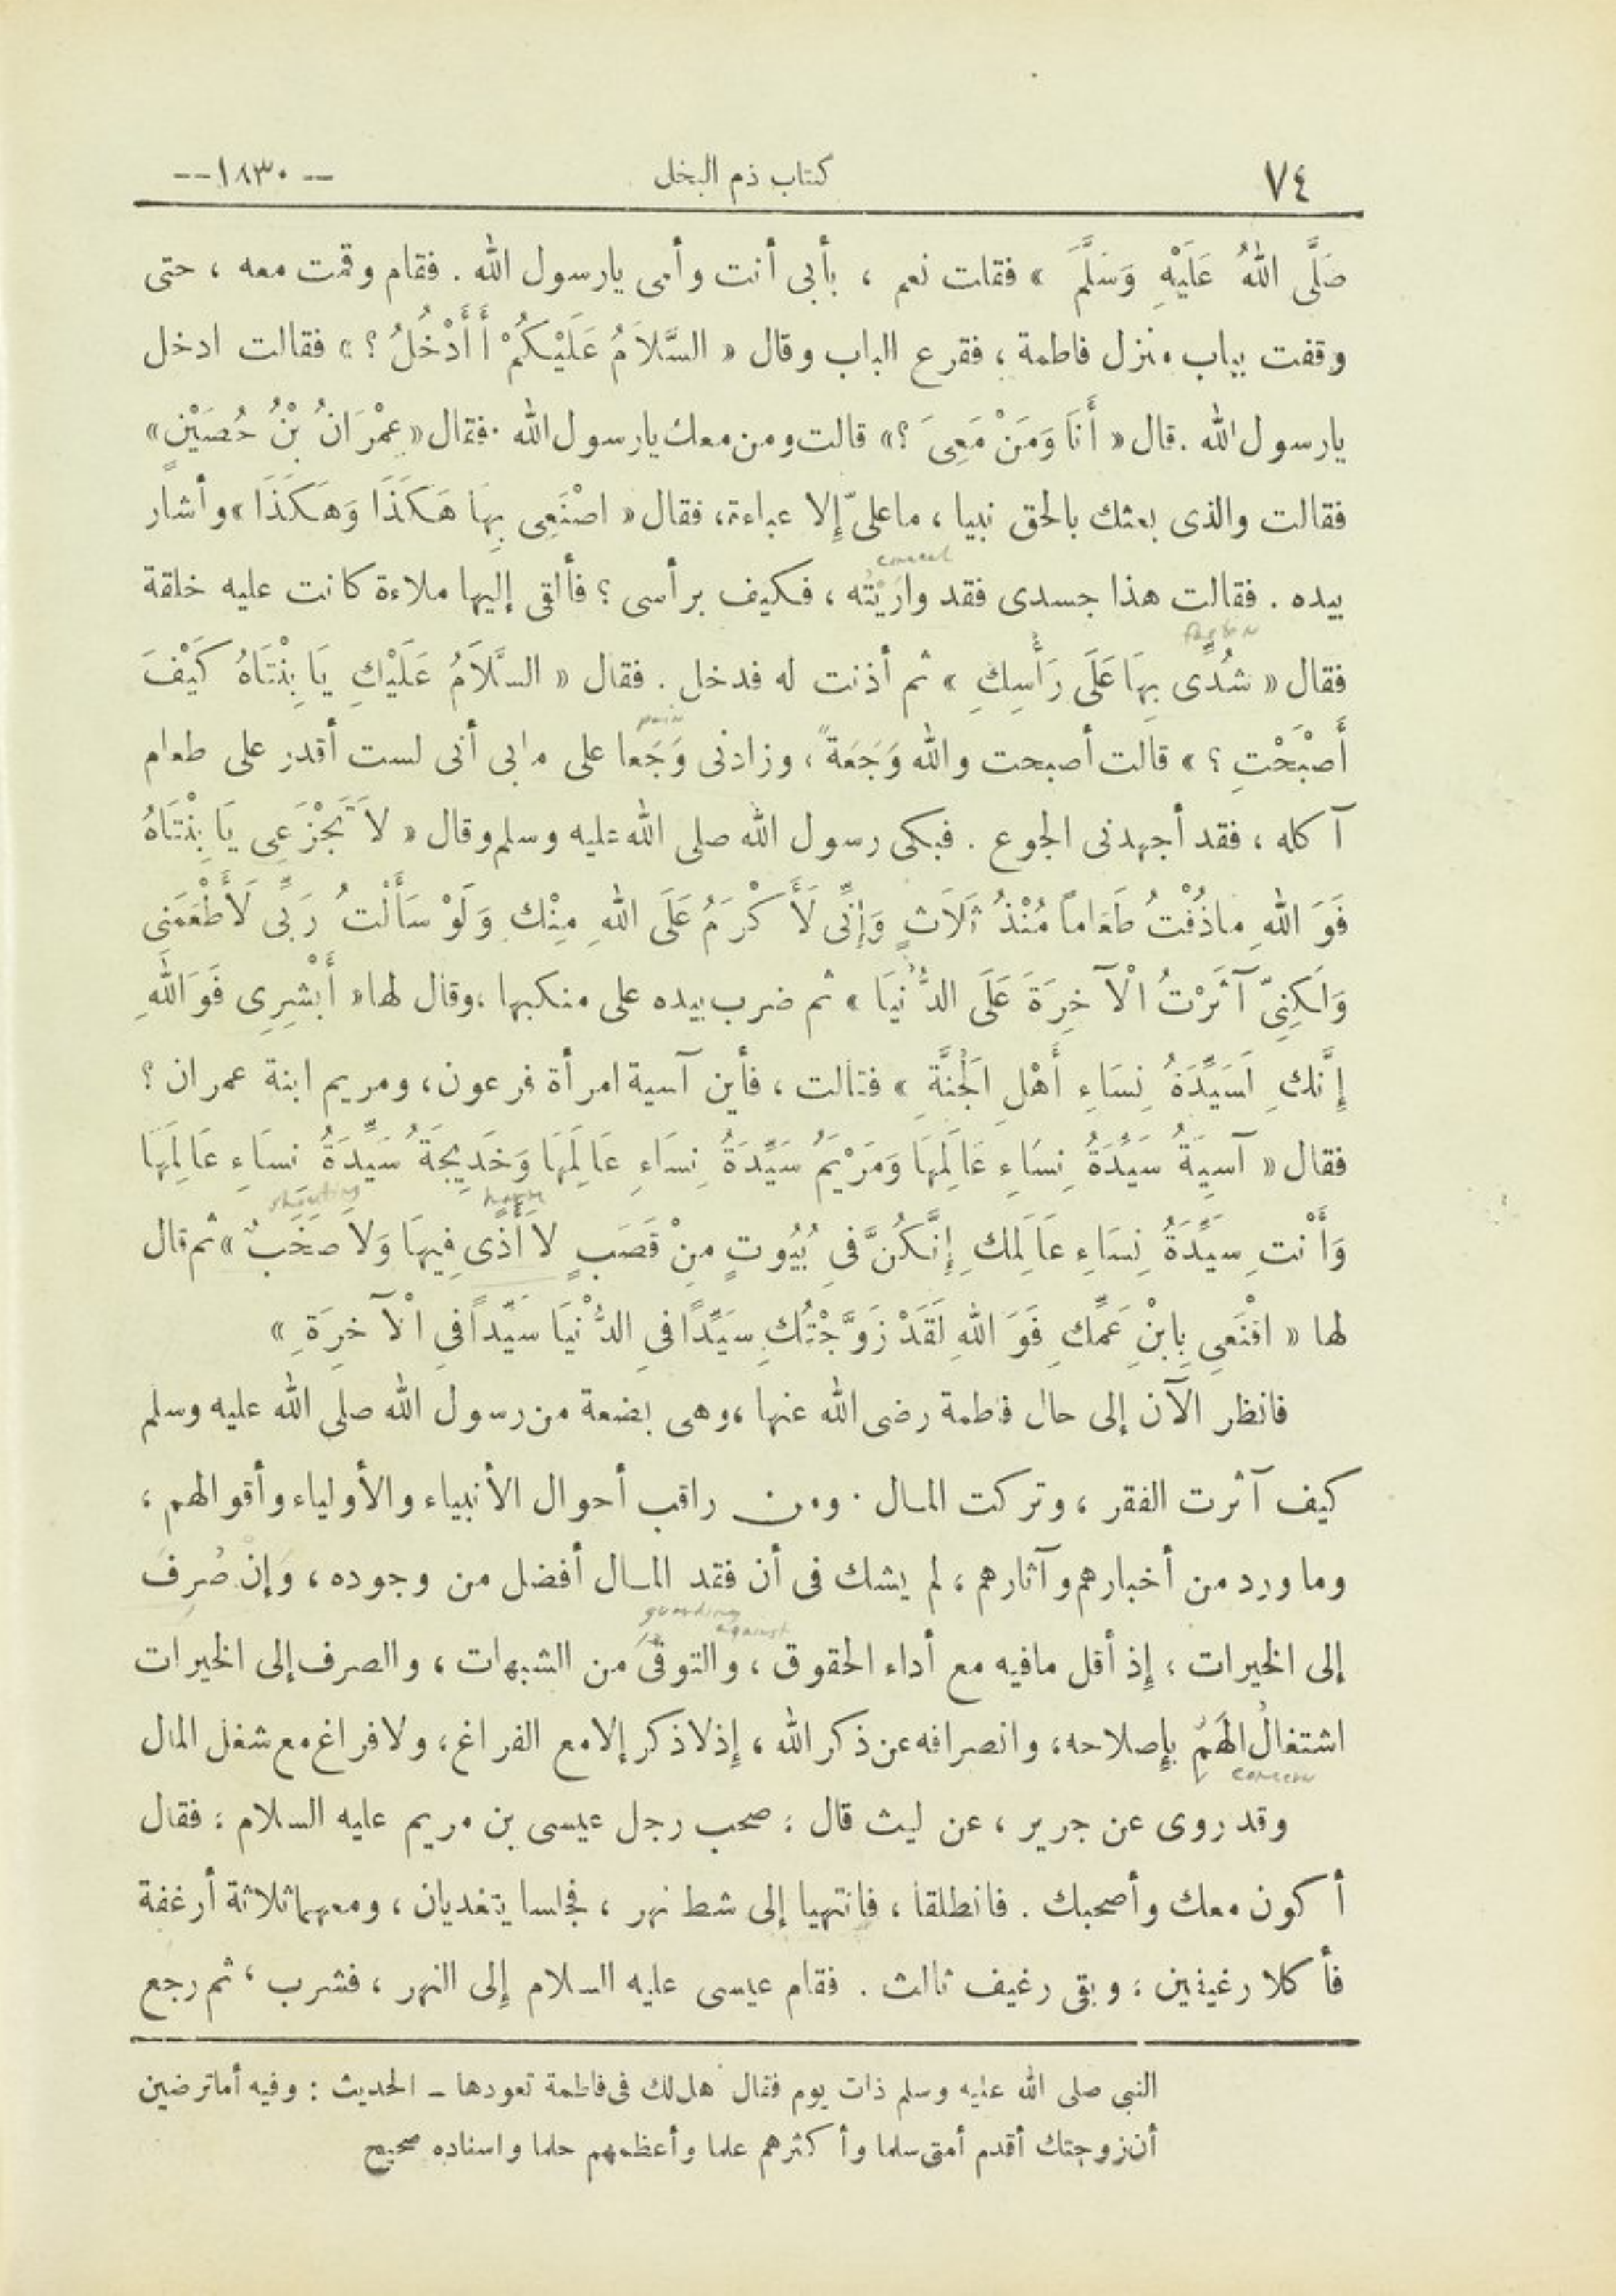 ٧٤ كتاب ذم البخل -- ١٨٣٠ --
صَلَّى اللهُ عَلَيْهِ وَسَلَّمَ » فقلت نعم ، بأبى أنت وأمى يارسول الله . فقام وقمت معه ، حتى
وقفت بباب منزل فاطمة ، فقرع الباب وقال « السَّلاَمُ عَلَيْكُمْ أَأَدْخُلُ ؟ » فقالت ادخل
يارسول الله . قال « أَنَا وَمَنْ مَعِىَ ؟ » قالت ومن معك يارسول الله . فقال « عِمْرَانُ بْنُ حُصَيْنٍ »
فقالت والذى بعثك بالحق نبيا ، ماعلىّ إلا عباءة ، فقال « اصْنَعِى بِهَا هَكَذَا وَهَكَذَا » وأشار
conceal
بيده . فقالت هذا جسدى فقد وارَيْتُه ، فكيف برأسى ؟ فألقى إليها ملاءة كانت عليه خلقة
fasten
فقال « شُدِّى بِهَا عَلَى رَأْسِكِ » ثم أذنت له فدخل . فقال « السَّلاَمُ عَلَيْكِ يَا بِنْتَاهُ كَيْفَ
pain
أَصْبَحْتِ ؟ » قالت أصبحت والله وَجَعَةً ، وزادنى وَجَعا على مابى أنى لست أقدر على طعام
آكله ، فقد أجهدنى الجوع . فبكى رسول الله صلى الله عليه وسلم وقال « لاَ تَجْزَعِى يَا بِنْتَاهُ
فَوَ اللهِ ماذُقْتُ طَعَاماً مُنْذُ ثَلاَثٍ وَإِنِّى لَأَكْرَمُ عَلَى اللهِ مِنْكِ وَلَوْ سَأَلْتُ رَبِّى لَأَطْعَمَنِى
وَلَكِنِّى آثَرْتُ الْآخِرَةَ عَلَى الدُّنْيَا » ثم ضرب بيده على منكبها ، وقال لها « أَبْشِرِى فَوَ اللهِ
إِنَّكِ لَسَيِّدَةُ نِسَاءِ أَهْلِ الْجَنَّةِ » فقالت ، فأين آسية امرأة فرعون ، ومريم ابنة عمران ؟
فقال « آسِيَةُ سَيِّدَةُ نِسَاءِ عَالَمِهَا وَمَرْيَمُ سَيِّدَةُ نِسَاءِ عَالَمِهَا وَخَدِيجَةُ سَيِّدَةُ نِسَاءِ عَالَمِهَا
harm shouting
وَأَنْتِ سَيِّدَةُ نِسَاءِ عَالَمِكِ إِنَّكُنَّ فِى بُيُوتٍ مِنْ قَصَبٍ لا أَذًى فِيهَا وَلا صَخَبٌ » ثم قال
لها « اقْنَعِى بِابْنِ عَمِّكِ فَوَ اللهِ لَقَدْ زَوَّجْتُكِ سَيِّدًا فِى الدُّنْيَا سَيِّداً فِى الْآخِرَةِ »
فانظر الآن إلى حال فاطمة رضى الله عنها ، وهى بضعة من رسول الله صلى الله عليه وسلم
كيف آثرت الفقر ، وتركت المال . ومن راقب أحوال الأنبياء والأولياء وأقوالهم ،
وما ورد من أخبارهم وآثارهم ، لم يشك فى أن فقد المال أفضل من وجوده ، وَإنْ صُرِفَ
guarding against
إلى الخيرات ؛ إذ أقل مافيه مع أداء الحقوق ، والتوقى من الشبهات ، والصرف إلى الخيرات
اشتغالُ الهَمِّ بإصلاحه ، وانصرافه عن ذكر الله ، إذ لاذكر إلا مع الفراغ ، ولا فراغ مع شغل المال
concern
وقد روى عن جرير ، عن ليث قال : صحب رجل عيسى بن مريم عليه السلام : فقال
أكون معك وأصحبك . فانطلقا ، فانتهيا إلى شط نهر ، فجلسا يتغديان ، ومعهما ثلاثة أرغفة
فأكلا رغيفين ؛ وبقى رغيف ثالث . فقام عيسى عليه السلام إلى النهر ، فشرب ، ثم رجع
النبى صلى الله عليه وسلم ذات يوم فقال هل لك فى فاطمة تعودها ـ الحديث : وفيه أماترضين
أن زوجتك أقدم أمتى سلما وأكثرهم علما وأعظمهم حلما واسناده صحيح